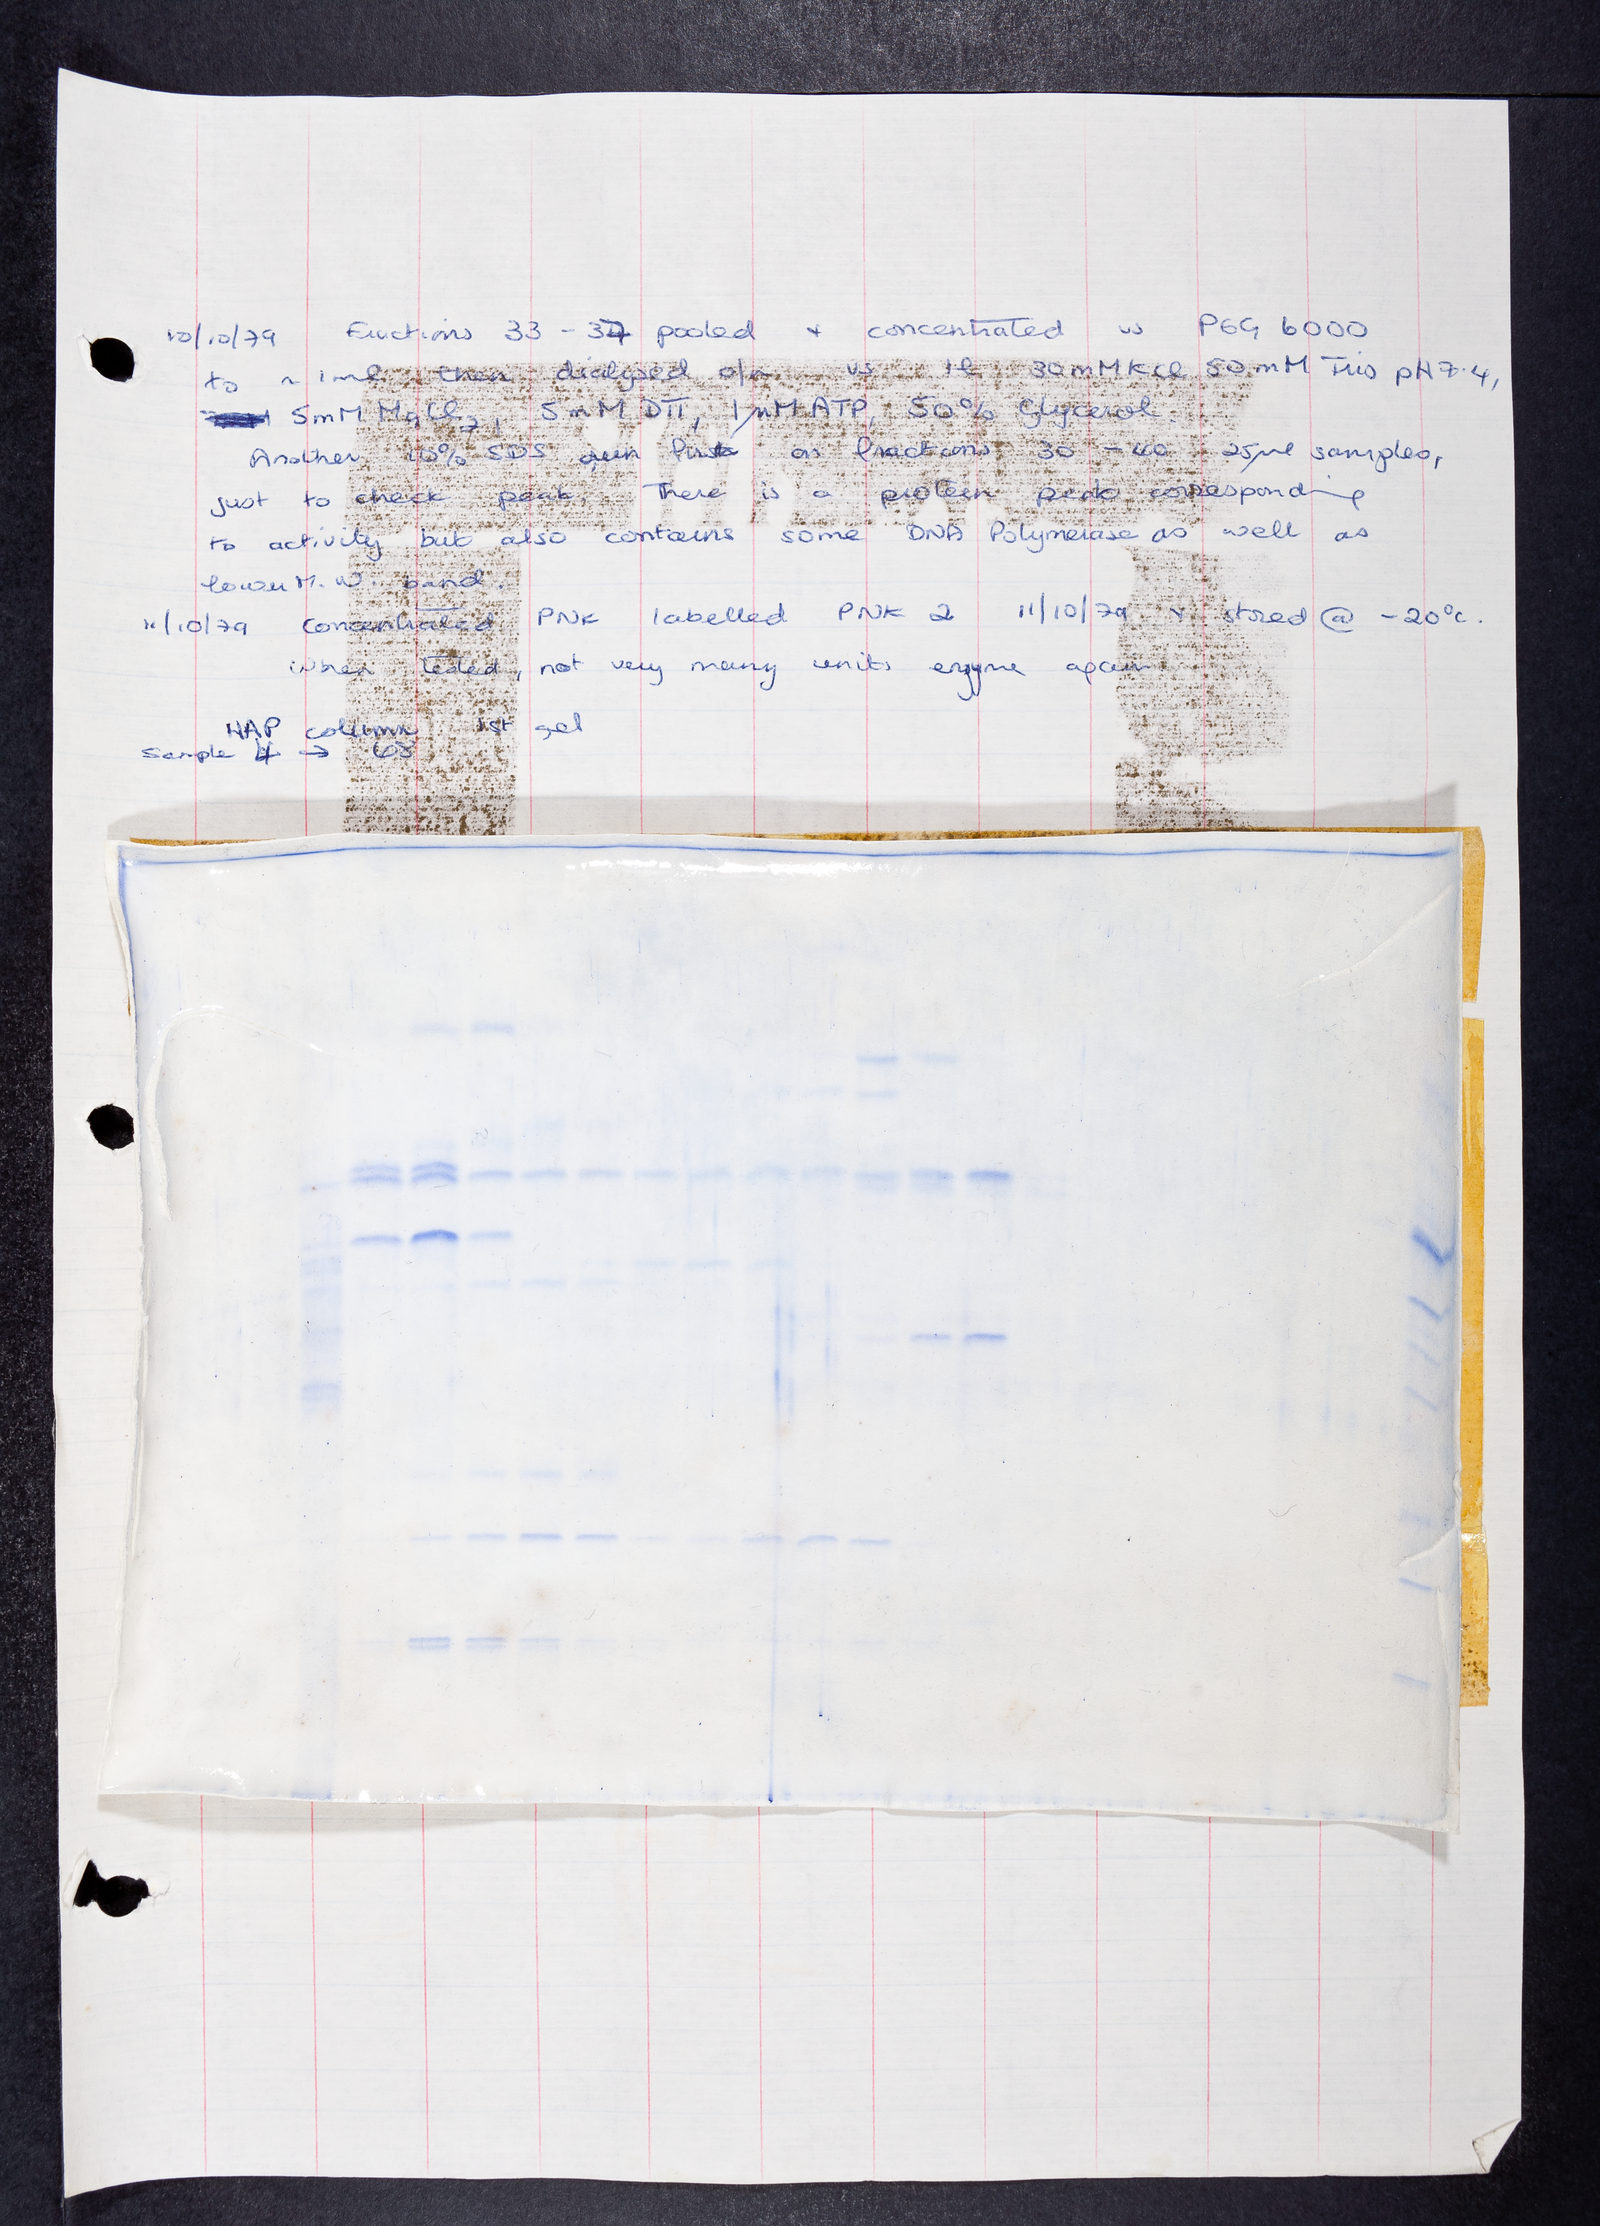 10/10/79 Fractions 33 - 37 pooled + concentrated vs PEG 6000
to ~ 1ml then dialysed o/n vs 1l 30mM KCl 50mM Tris pH 7.4,
5mM MgCl2, 5mM DTT, 1µM ATP, 50% Glycerol.
Another 10% SDS run first on fractions 30 - 40 25µl samples,
just to check peak. There is a protein peak corresponding
to activity but also contains some DNA Polymerase as well as
lower M.W. band.
11/10/79 Concentrated PNK labelled PNK 2 11/10/79 + stored @ -20°c.
When tested, not very many units enzyme again
HAP column 1st gel
Sample 4 → 63